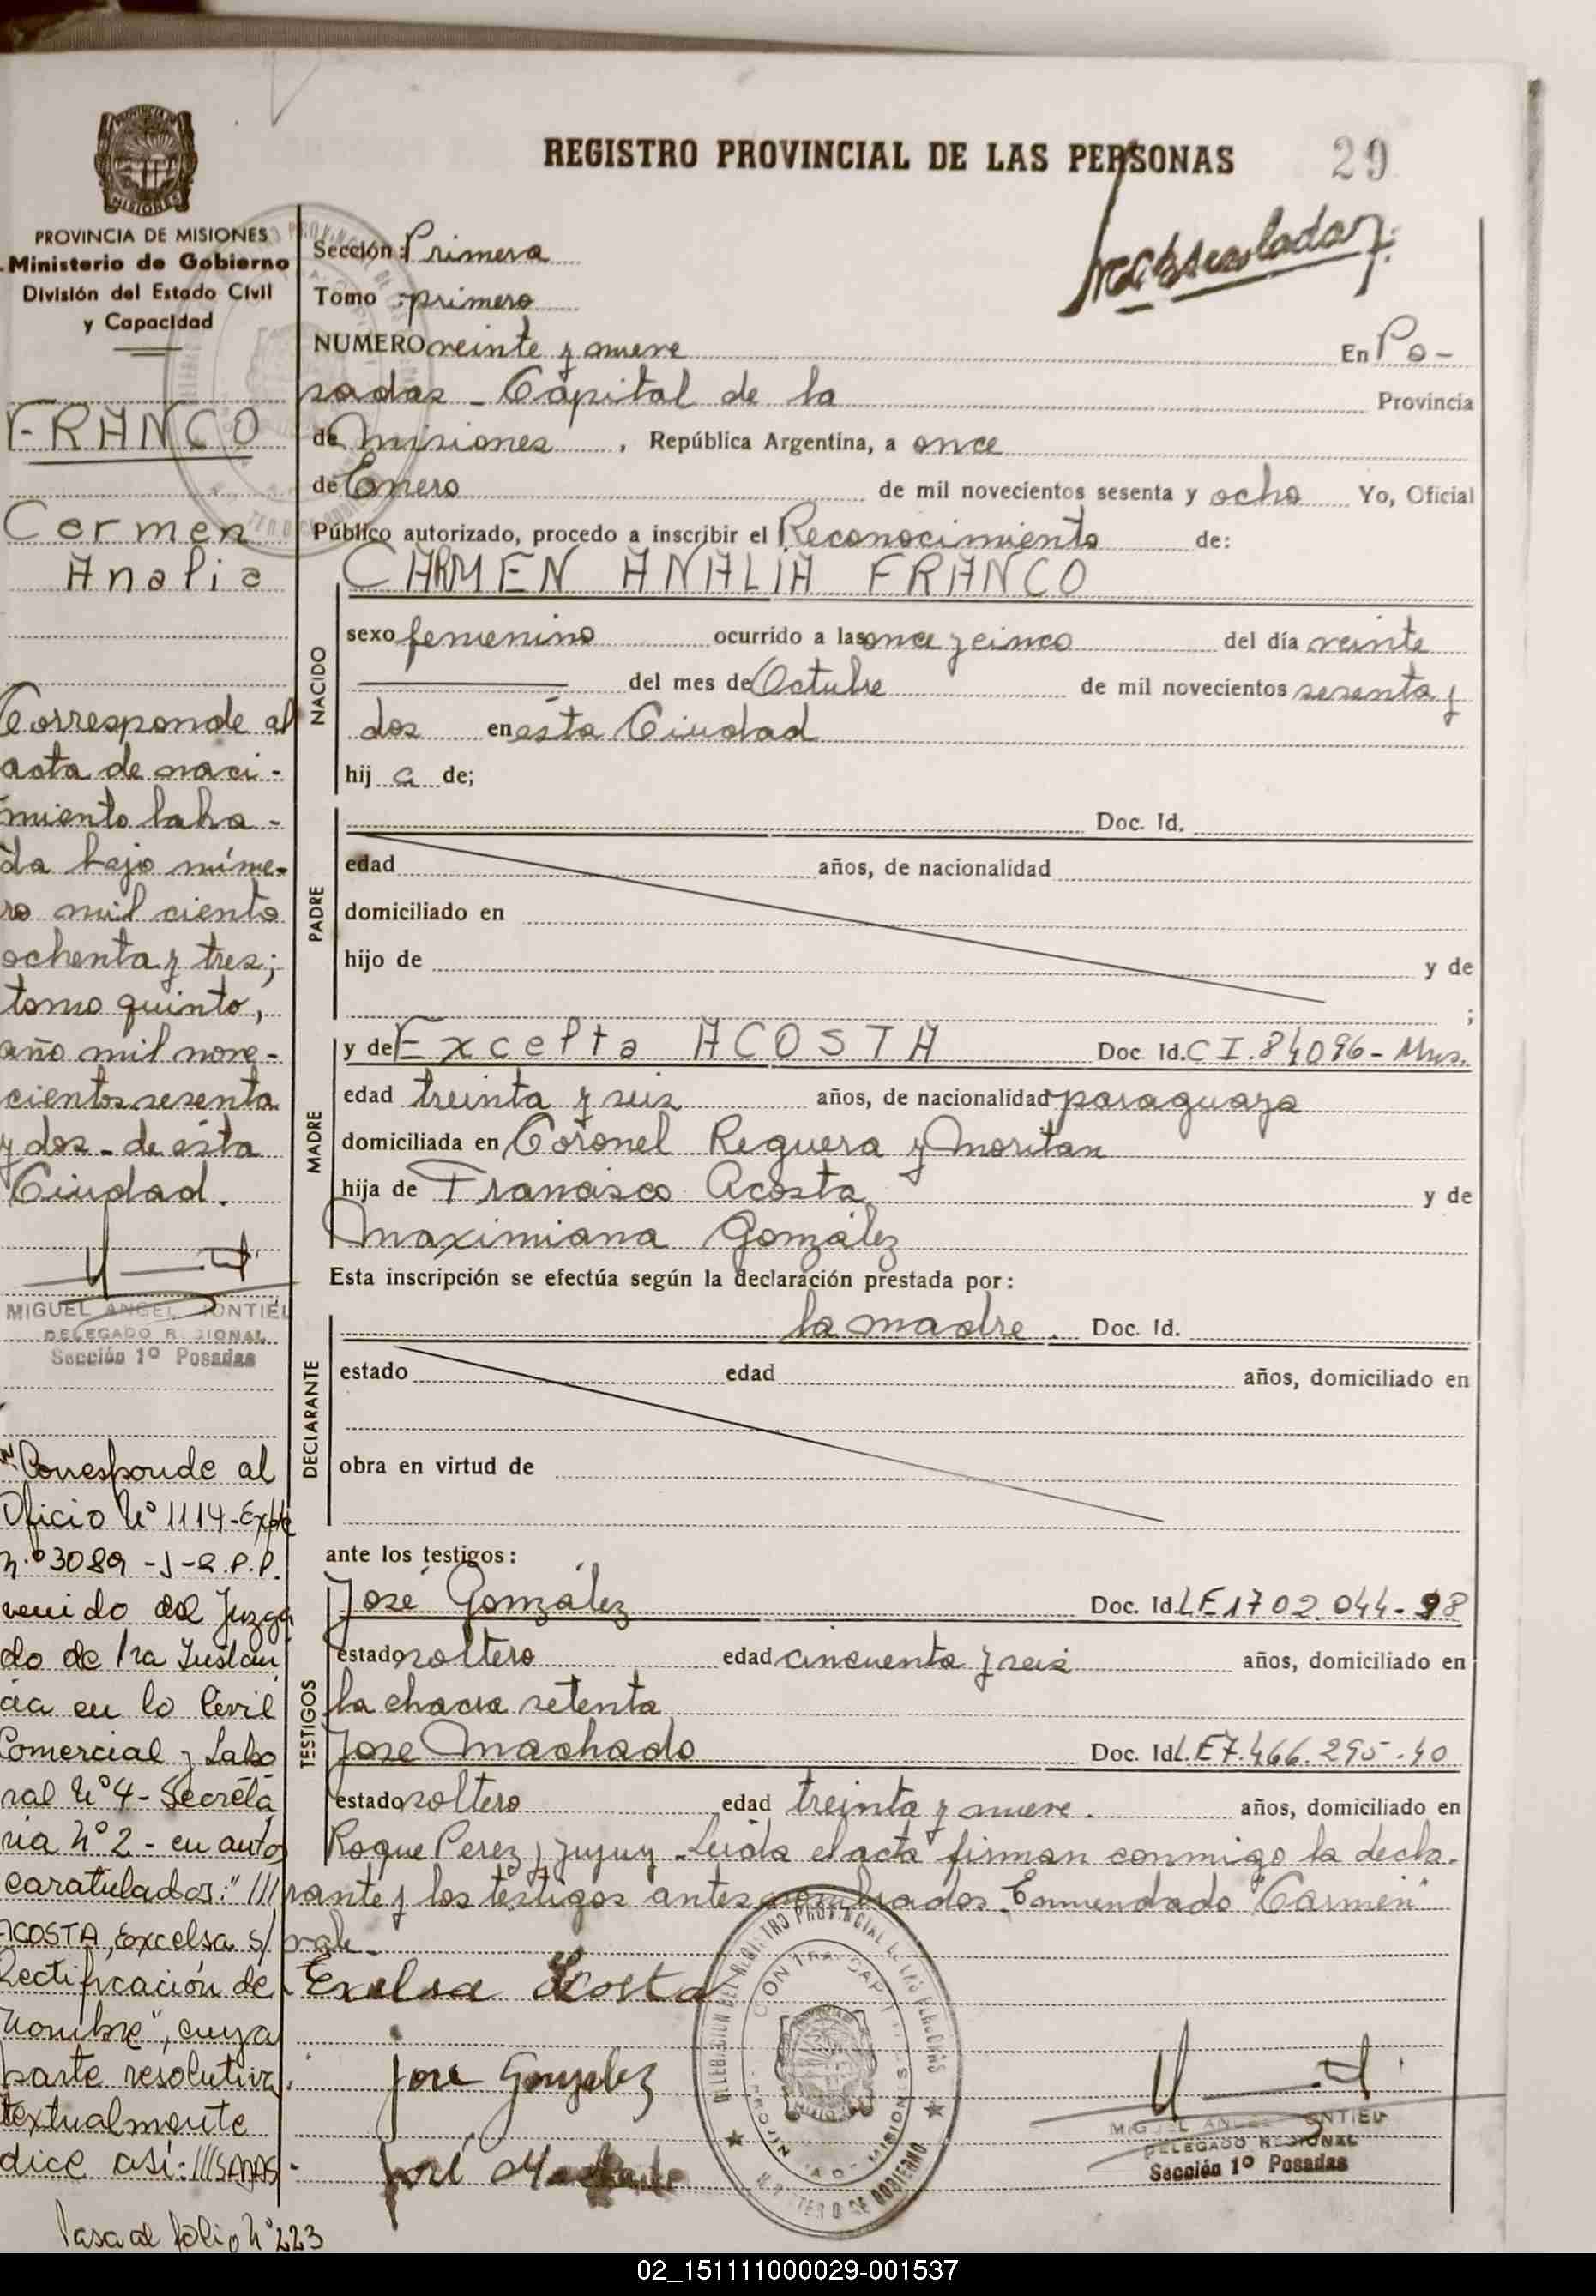 REGISTRO PROVINCIAL DE LAS PERSONAS
29
PROVINCIA DE MISIONES
Ministerio de Gobierno
División del Estado Civil
y Capacidad
FRANCO
Carmen
Analia
Corresponde al
acta de naci-
miento laba-
da bajo núme-
ro mil ciento
ochenta y tres;
tomo quinto,
año mil nove-
cientos sesenta
y dos - de ésta
Ciudad.
MIGUEL ANGEL
DELEGADO REGIONAL
Sección 1º Posadas
Corresponde al
Oficio Nº 1114-Expte
N.º 3089 -J-
venido del Juzga
do de 1ra Instan
cia en lo Civil
Comercial y Labo
ral Nº 4 - Secreta
ria Nº 2 - en autos
caratulados: "///
ACOSTA, Excelsa s/
Rectificación de
Nombre", cuya
parte resolutiva
textualmente
dice así: ///SADAS
Pasa al folio Nº 223
Sección: Primera
Tomo : primero
NUMERO veinte y nueve En Po-
sadas - Capital de la Provincia
de Misiones, República Argentina, a once
de Enero de mil novecientos sesenta y ocho Yo, Oficial
Público autorizado, procedo a inscribir el Reconocimiento de:
CARMEN ANALIA FRANCO
NACIDO
sexo femenino ocurrido a las once y cinco del día veinte
del mes de Octubre de mil novecientos sesenta y
dos en ésta Ciudad
hij a de;
PADRE
Doc. Id.
edad años, de nacionalidad
domiciliado en
hijo de y de
;
MADRE
y de Excelta ACOSTA Doc. Id. C I. 84096- Mns.
edad treinta y seis años, de nacionalidad paraguaya
domiciliada en Coronel Reguera y Moritan
hija de Francisco Acosta y de
Maximiana González
Esta inscripción se efectúa según la declaración prestada por:
DECLARANTE
la madre. Doc. Id.
estado edad años, domiciliado en
obra en virtud de
ante los testigos:
TESTIGOS
José González Doc. Id. LE 1702.044-98
estado soltero edad cincuenta y seis años, domiciliado en
la chacra setenta
Jose Machado Doc. Id. L.E 7.466.295-40
estado soltero edad treinta y nueve. años, domiciliado en
Roque Perez y Jujuy - Leida el acta firman conmigo la decla-
rante y los testigos antes nombrados. Enmendado "Carmen"
vale -
Exelsa Acosta
Jose Gonzalez
José
MIGUEL ANGEL
DELEGADO REGIONAL
Sección 1º Posadas
02_151111000029-001537